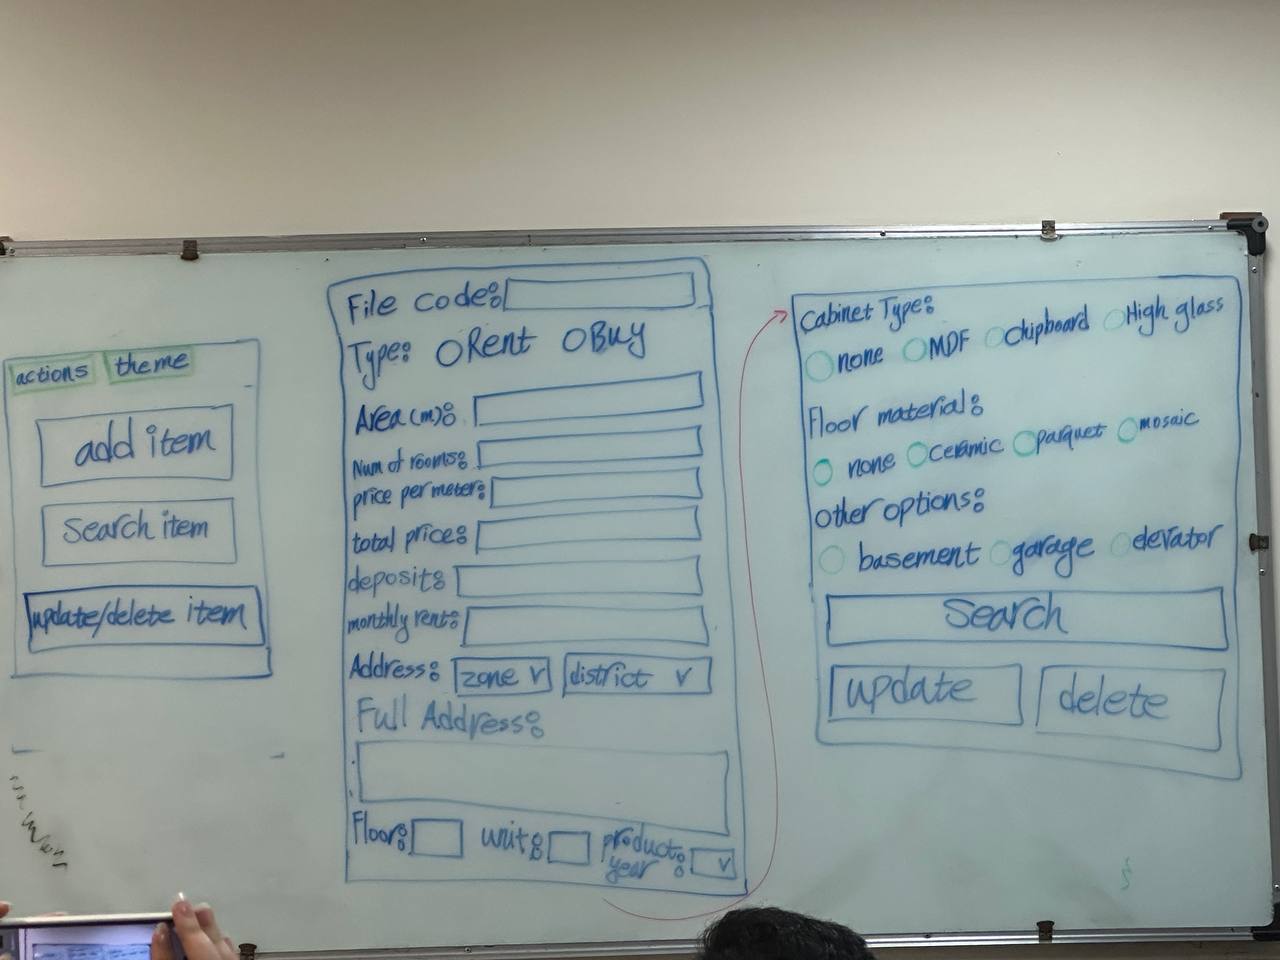 actions theme
add item
Search item
update/delete item
File code:
Type: Rent Buy
Area(m):
Num of rooms:
price per meter:
total price:
deposit:
monthly rent:
Address: zone v district v
Full Address:
Floor: unit: product year: v
Cabinet Type:
none MDF chipboard High glass
Floor material:
none ceramic parquet mosaic
other options:
basement garage elevator
Search
update delete